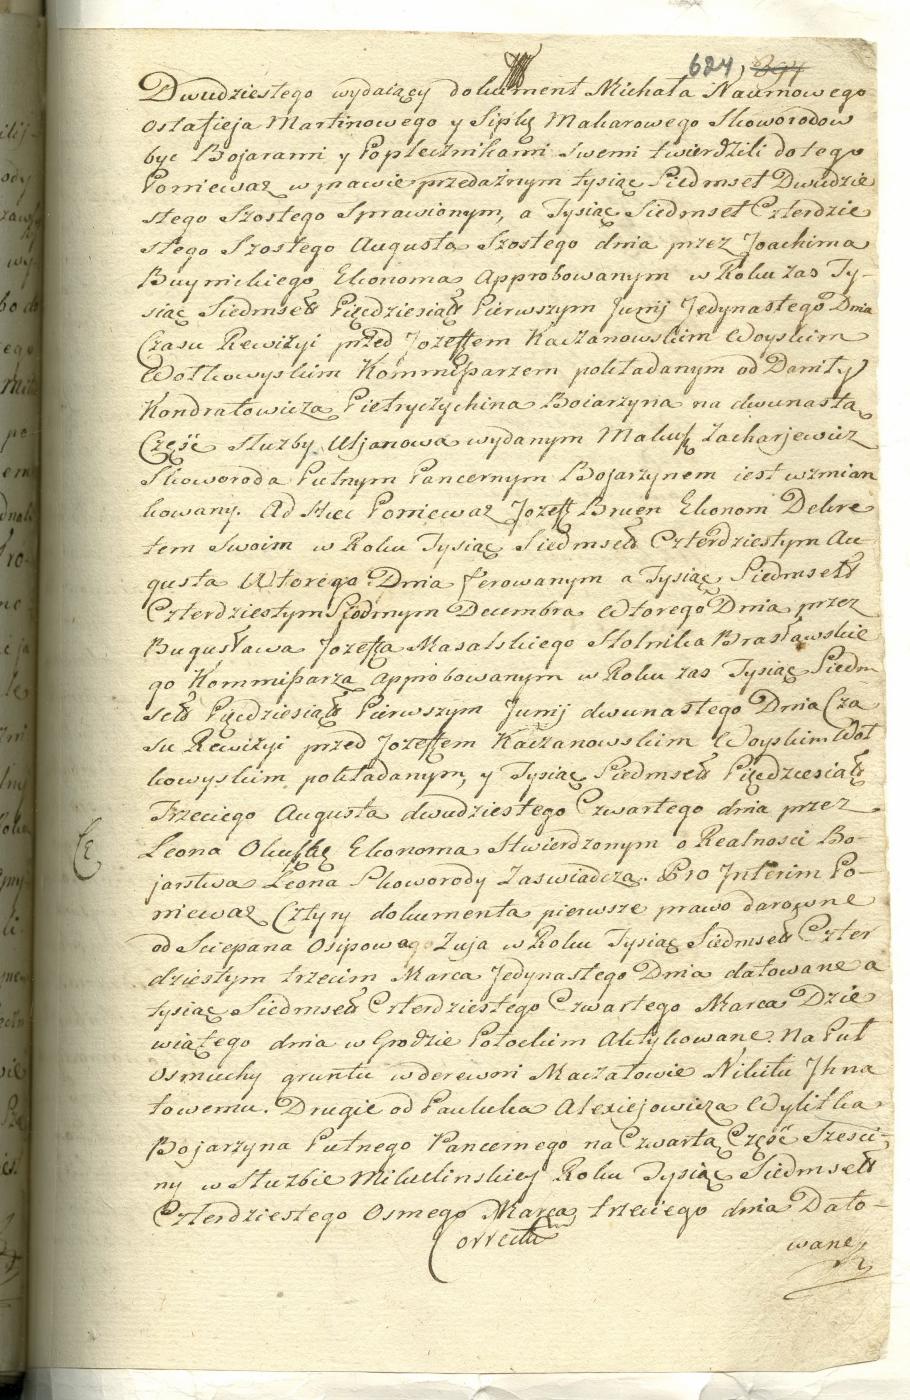 624, 394
Dwudziestego wydaiący dokument Michała Naumowego
Ostafieja Martinowego y Sipkę Makarowego Skoworodow
byc Bojarami y Poplecznikami swemi twierdzili do tego
Ponieważ w prawie przedażnym tysiąc Siedmset Dwudzie
stego Szostego Sprawionym, a Tysiąc Siedmset Czterdzie
stego Szostego Augusta Szostego dnia przez Joachima
Buynickiego Ekonoma Approbowanym w Roku zas Ty-
siąc Siedmset Pięcdziesiąt Pierwszym Junij Jedynastego Dnia
Czasu Rewizyi przed Jozeffem Kaczanowskim Woyskim
Wołkowyskim Kommissarzem pokładanym od Daniły
Kondratowicza Pietryczychina Boiarzyna na dwunastą
Część Służby Uljanowa wydanym Zacharjewicz
Skoworoda Putnym Pancernym Bojarzynem iest wzmian
kowany. Ad Haec Ponieważ Jozeff Bruen Ekonom Dekre
tem Swoim w Roku Tysiąc Siedmset Czterdziestym Au-
gusta Wtorego Dnia ferowanym a Tysiąc Siedmset
Czterdziestym Siodmym Decembra Wtorego Dnia przez
Bugusława Jozeffa Masalskiego Stolnika Brasławskie
go Kommissarza approbowanym w Roku zas Tysiąc Siedm-
set Pięcdziesiąt Pierwszym Junij dwunastego Dnia Cza
su Rewizyi przed Jozeffem Kaczanowskim Woyskim Woł
kowyskim pokładanym, y Tysiąc Siedmset Pięcdziesiąt
Trzeciego Augusta dwudziestego Czwartego dnia przez
Leona Okuszkę Ekonoma Stwierdzonym o Realnosci Bo-
jarstwa Leona Skoworody Zaswiadcza. Pro Interim Po-
nieważ Cztyry dokumenta pierwsze prawo darowne
od Sciepana Osipowego Zuja w Roku Tysiąc Siedmset Czter
dziestym trzecim Marca Jedynastego Dnia datowane a
tysiąc Siedmset Czterdziestego Czwartego Marca Dzie
wiątego dnia w Grodzie Połockim Aktykowane. Na Puł
Osmuchy gruntu w derewni Maczatowie Nikitu Jhna
towemu. Drugie od Pauluka Alexiejowicza Wylitka
Bojarzyna Putnego Pancernego na Czwartą Część Szesci-
ny w Służbie Milulinskiey Roku Tysiąc Siedmset
Czterdziestego Osmego Marca trzeciego dnia Dato-
Correctu wane